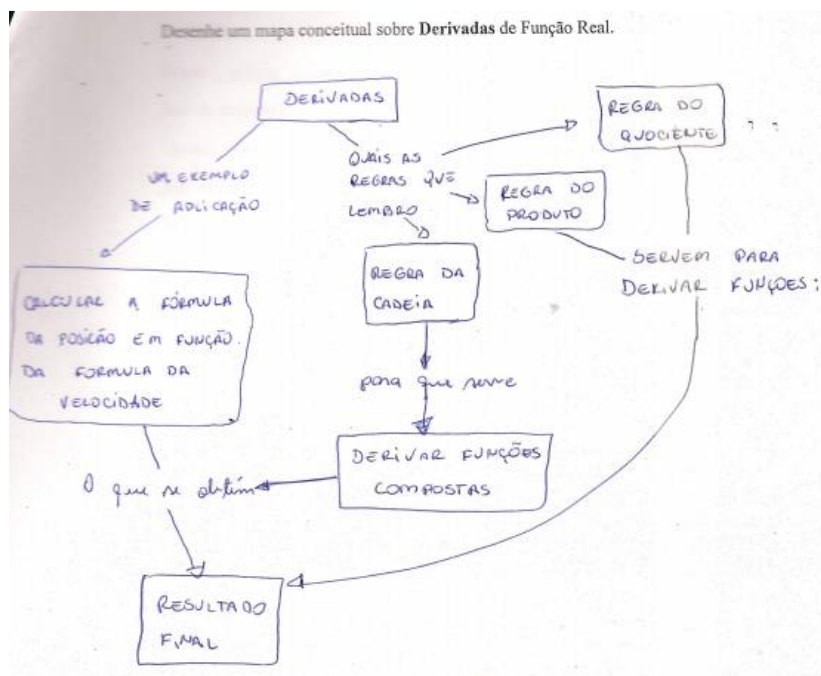 Desenhe um mapa conceitual sobre Derivadas de Função Real.
DERIVADAS
REGRA DO
QUOCIENTE
UM EXEMPLO
DE APLICAÇÃO
QUAIS AS
REGRAS QUE
LEMBRO
REGRA DO
PRODUTO
SERVEM PARA
DERIVAR FUNÇÕES:
CALCULAR A FÓRMULA
DA POSICÃO EM FUNÇÃO.
DA FORMULA DA
VELOCIDADE
REGRA DA
CADEIA
para que serve
DERIVAR FUNÇÕES
COMPOSTAS
O que se obtém
RESULTADO
FINAL